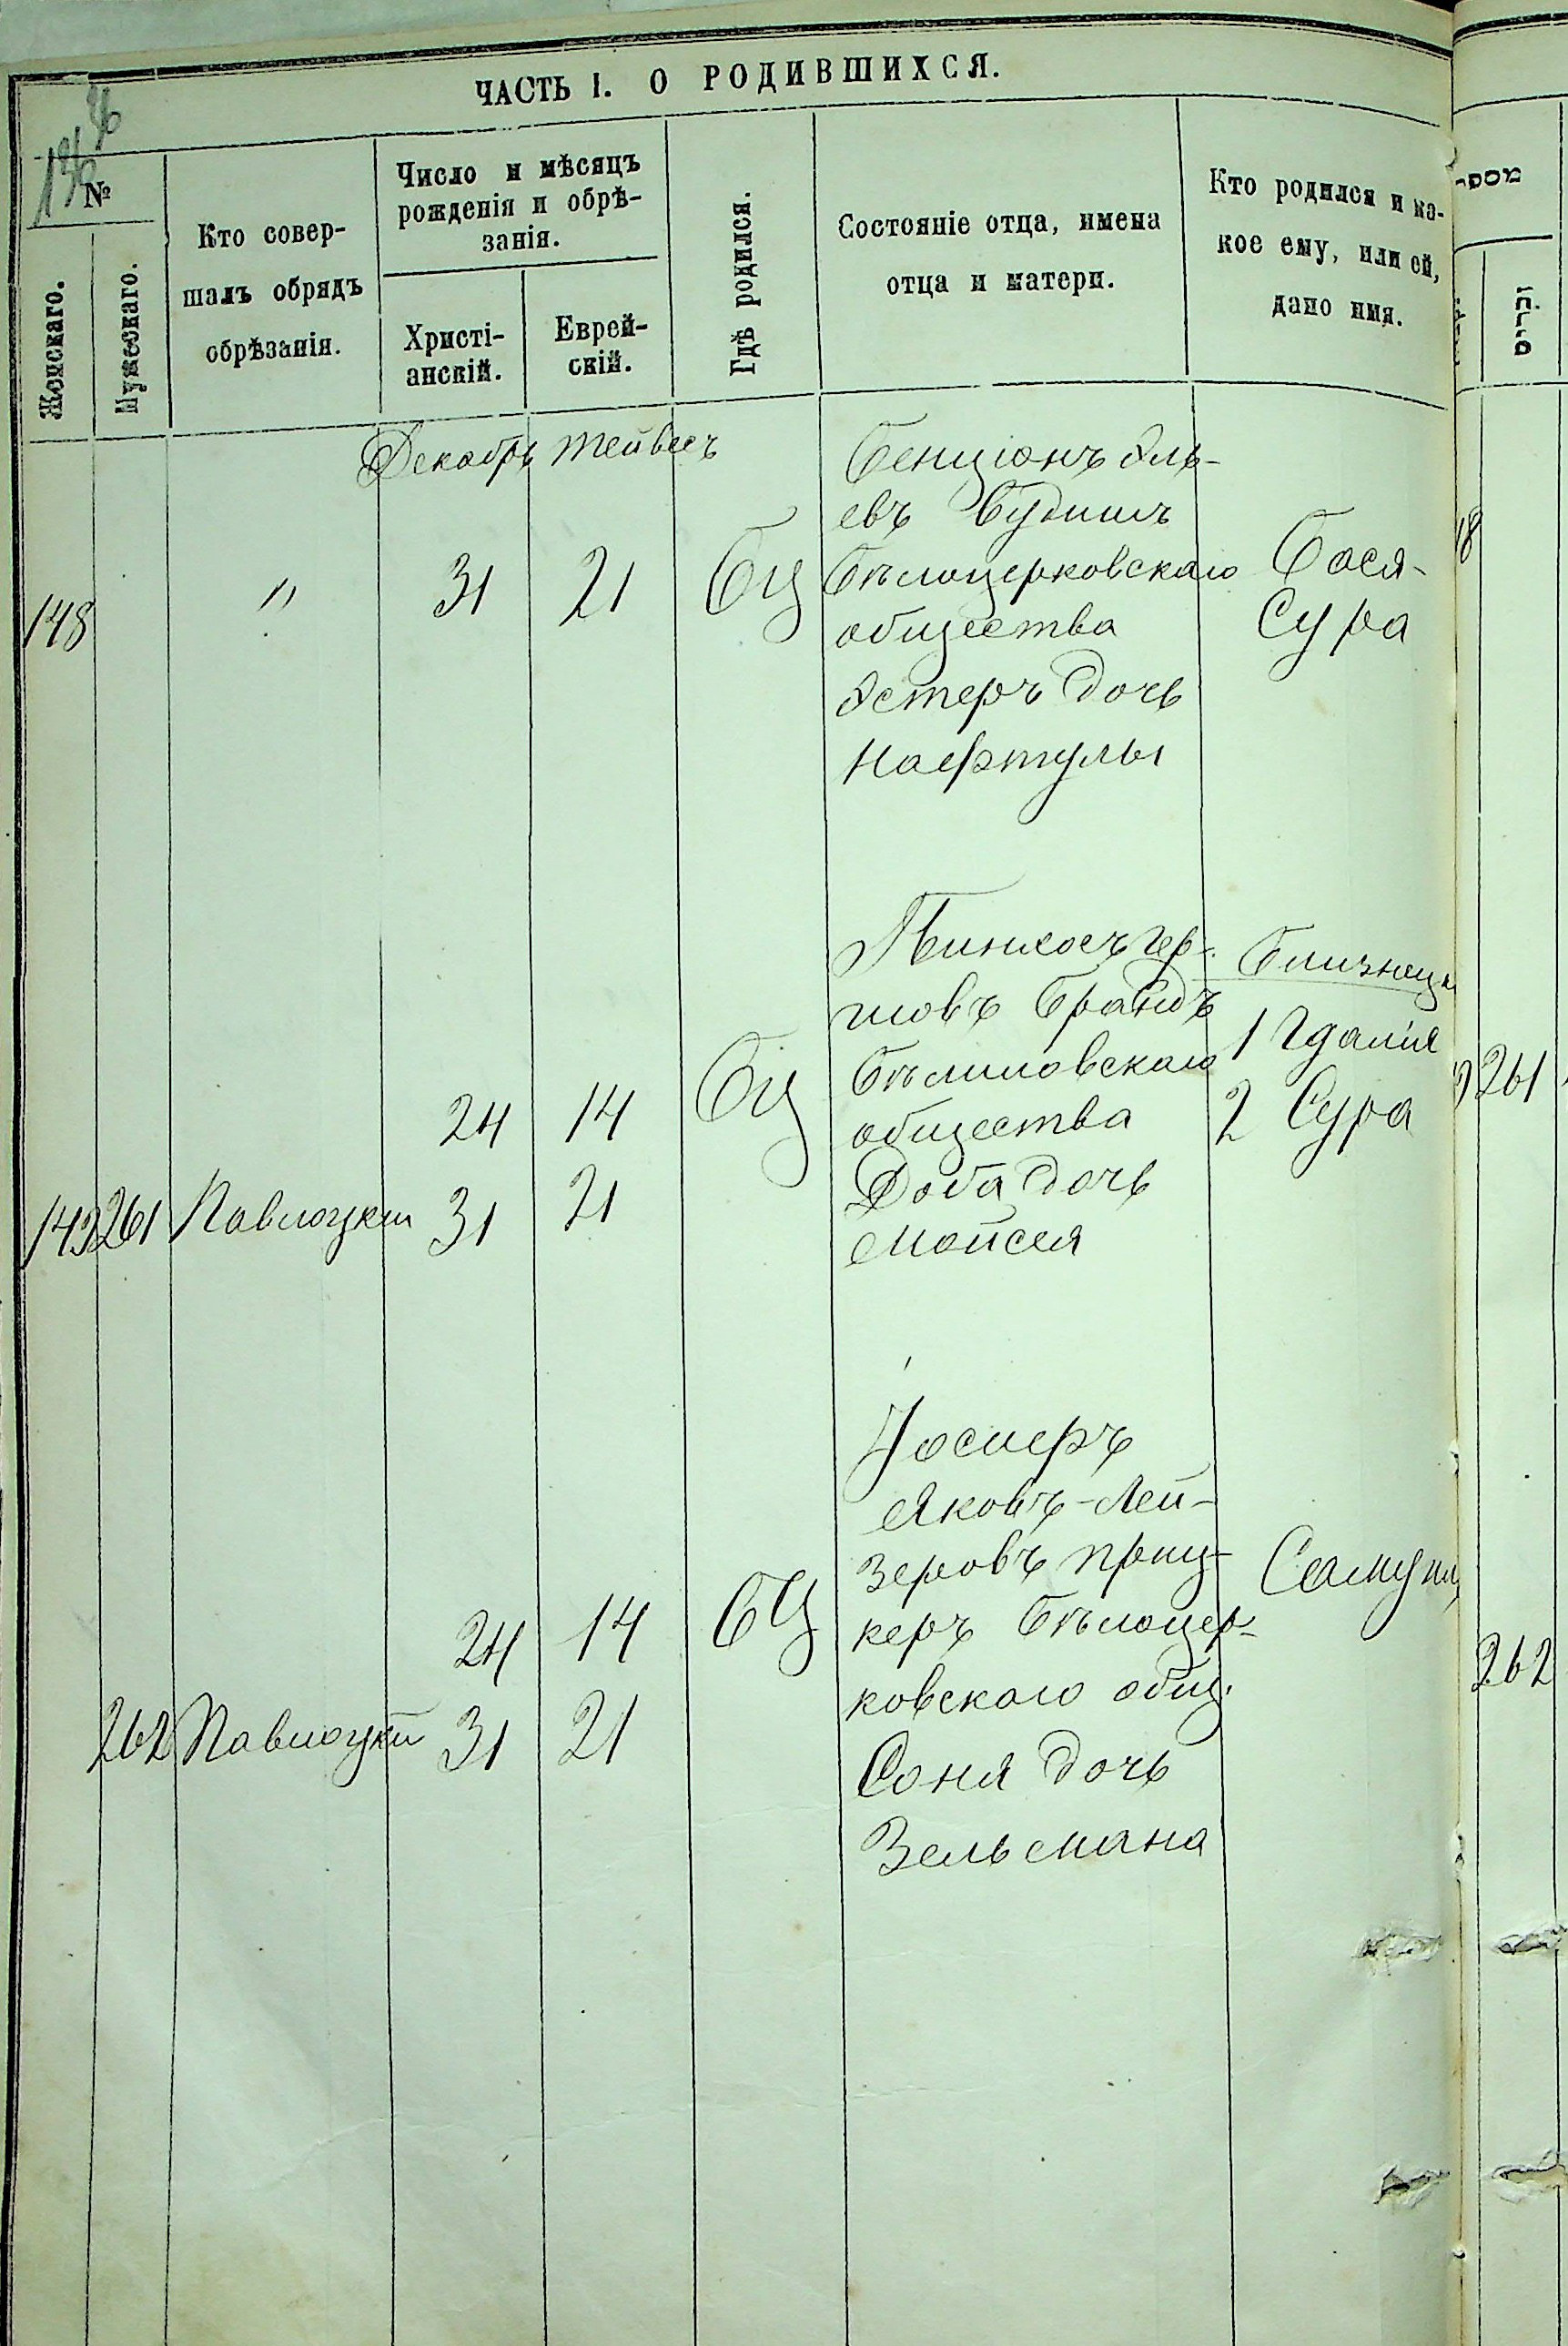 ЧАСТЬ I. О РОДИВШИХСЯ.
№
Женскаго.
Мужескаго.
Кто совер-
шалъ обрядъ
обрѣзанія.
Число и мѣсяцъ
рожденія и обрѣ-
занія.
Христі-
анскій.
Еврей-
скій.
Гдѣ родился.
Состояніе отца, имена
отца и матери.
Кто родился и ка-
кое ему, или ей,
дано имя.
Декабрь Тейвесъ
148 " 31 21 БЦ
Бенціонъ Эль-
евъ
Бѣлоцерковскаго
общества
Эстеръ дочь
Нафтулы
Бася-
Сура
24 14 БЦ
143 261 Павлоцкій 31 21
Пинхосъ Гер-
шовъ Брандъ
Бѣлиловскаго
общества
Доба дочь
Мойсея
Близнецы
1 Гдалія
2 Сура
24 14 БЦ
262 Павлоцкій 31 21
Іосифъ
Яковъ-Лей-
зеровъ Приц-
керъ Бѣлоцер-
ковскаго общ.
Соня дочь
Зельмана
Самуил
מספר
זכרים
18
261
262